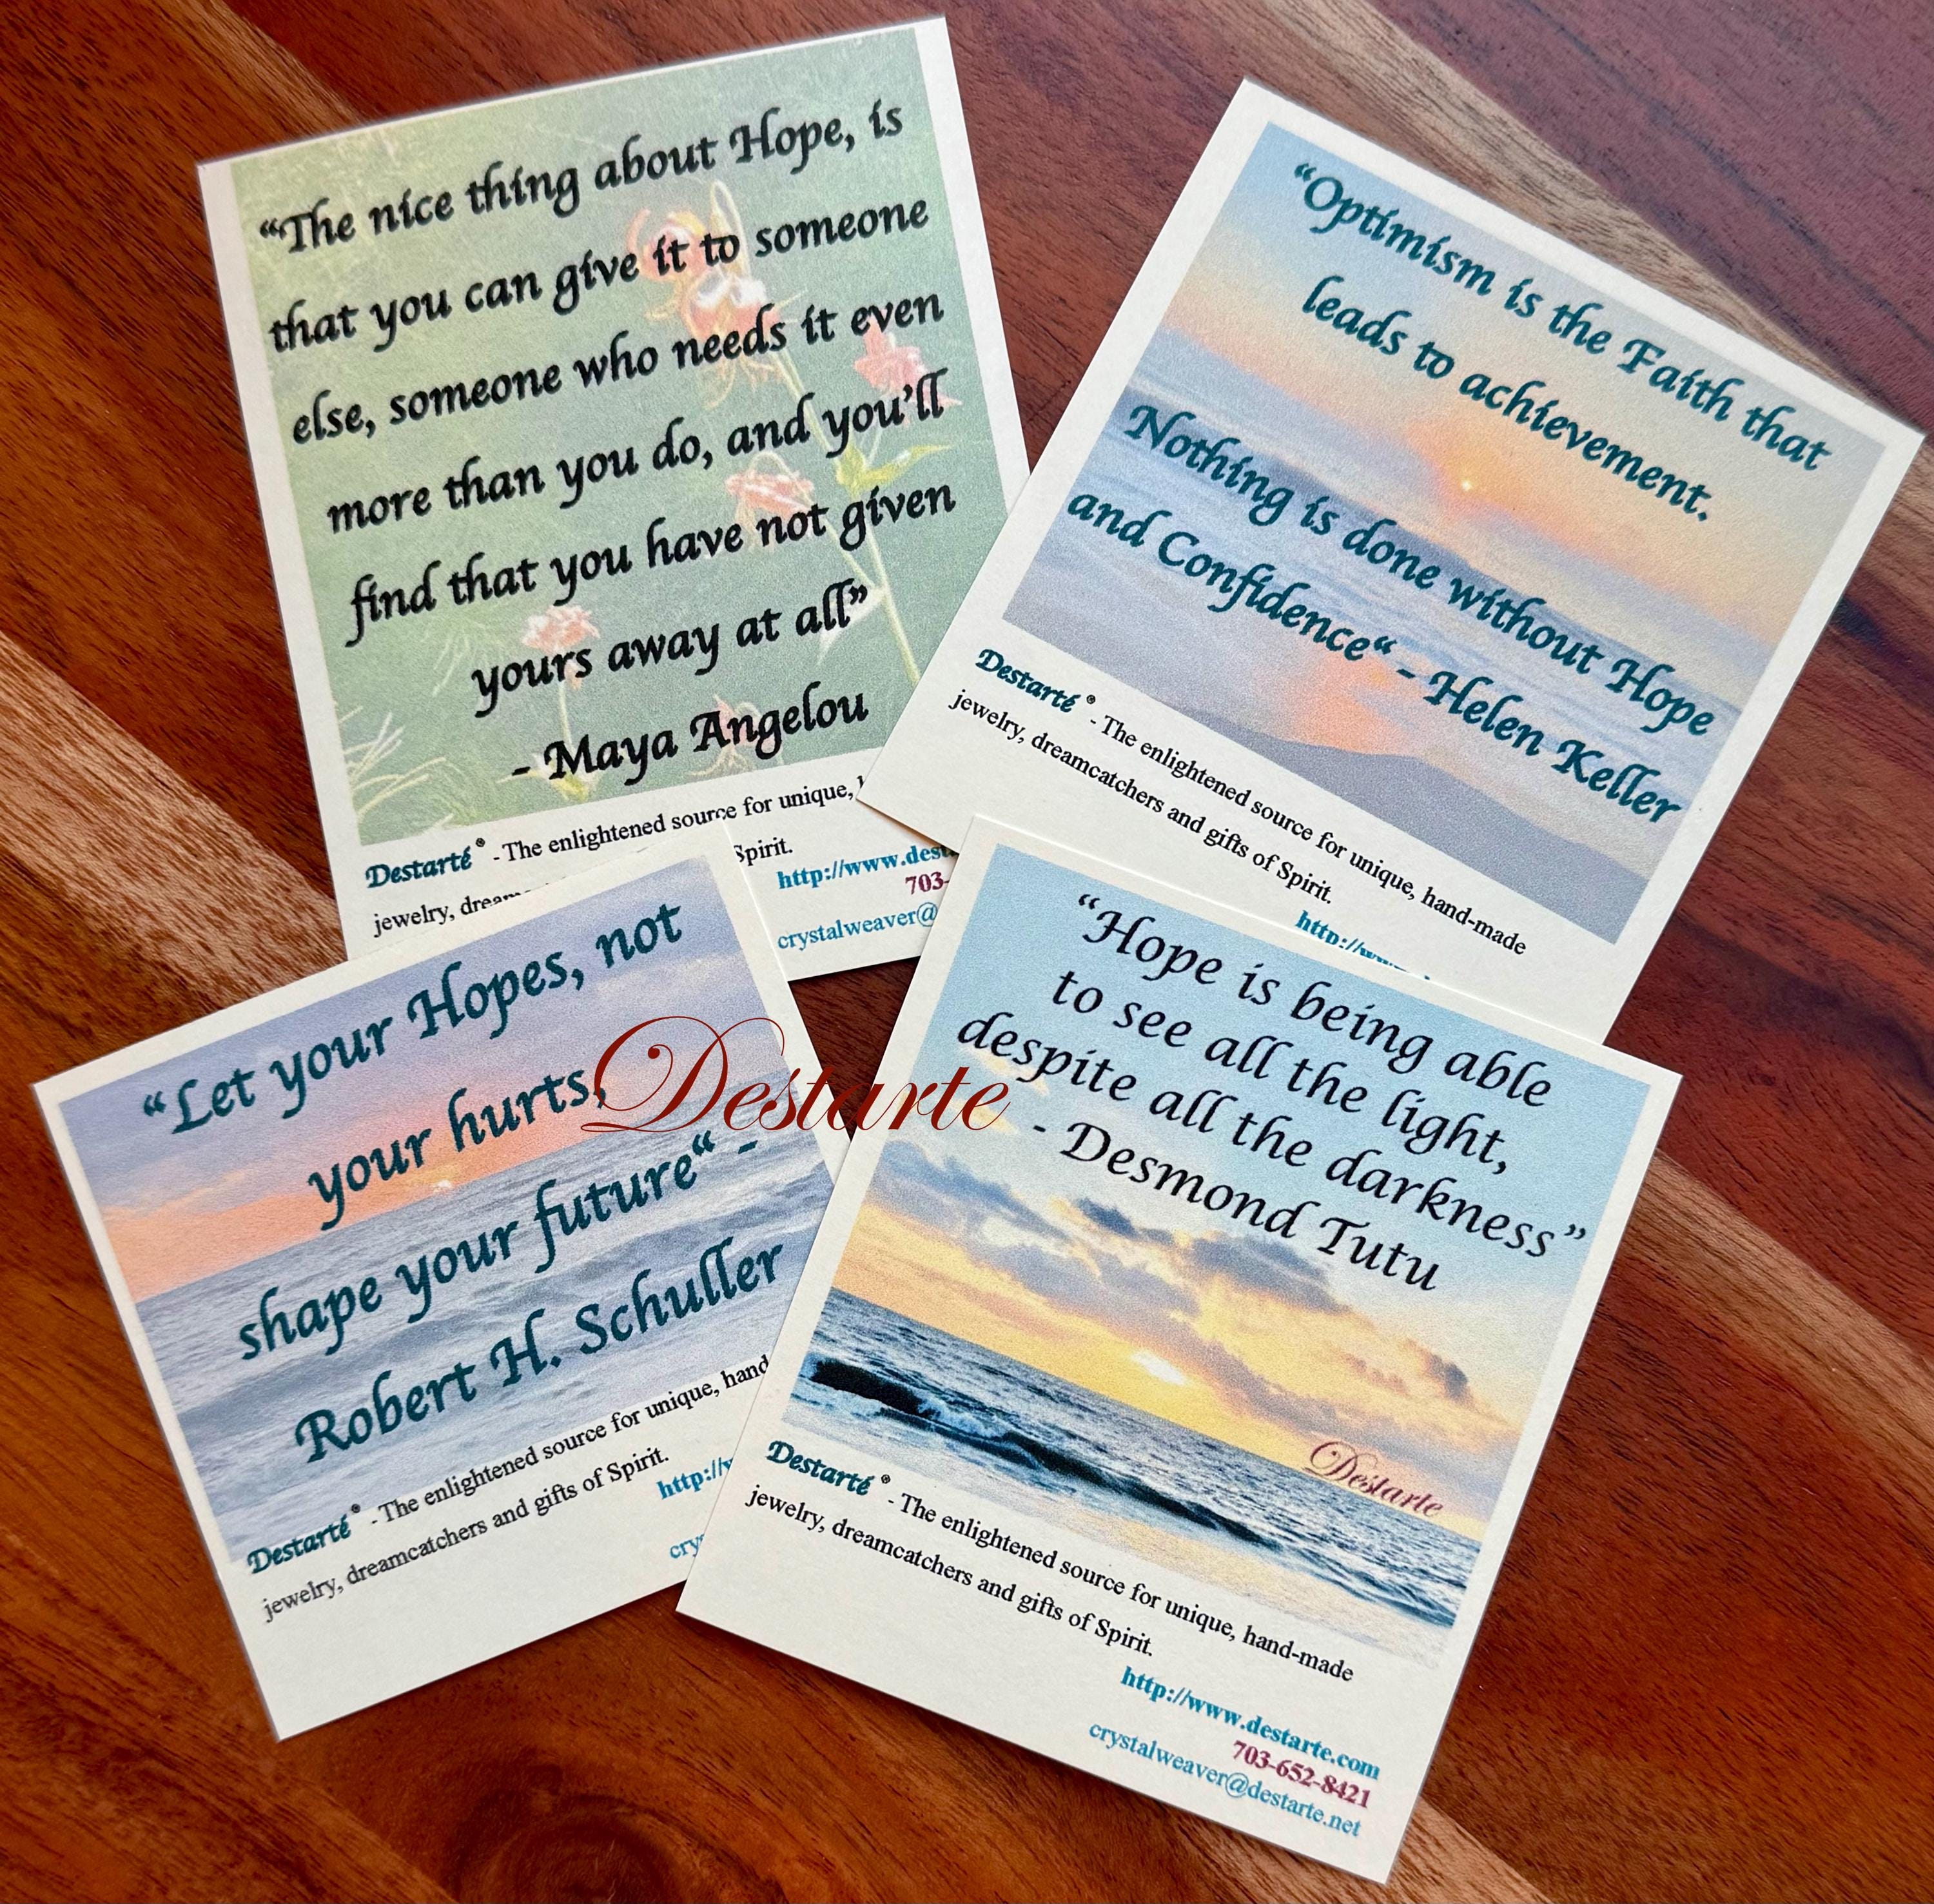 “The nice thing about Hope, is
that you can give it to someone
else, someone who needs it even
more than you do, and you’ll
find that you have not given
yours away at all”
- Maya Angelou
Destarté ® - The enlightened source for unique,
jewelry,
Spirit.
http://www.dest
703-
crystalweaver@
“Optimism is the Faith that
leads to achievement.
Nothing is done without Hope
and Confidence“ - Helen Keller
Destarté ® - The enlightened source for unique, hand-made
jewelry, dreamcatchers and gifts of Spirit.
http://www.
“Let your Hopes, not
your hurts,
shape your future“ -
Robert H. Schuller
Destarté ® - The enlightened source for unique, hand
jewelry, dreamcatchers and gifts of Spirit.
http://w
cry
Destarte
“Hope is being able
to see all the light,
despite all the darkness”
- Desmond Tutu
Destarte
Destarté ® - The enlightened source for unique, hand-made
jewelry, dreamcatchers and gifts of Spirit.
http://www.destarte.com
703-652-8421
crystalweaver@destarte.net